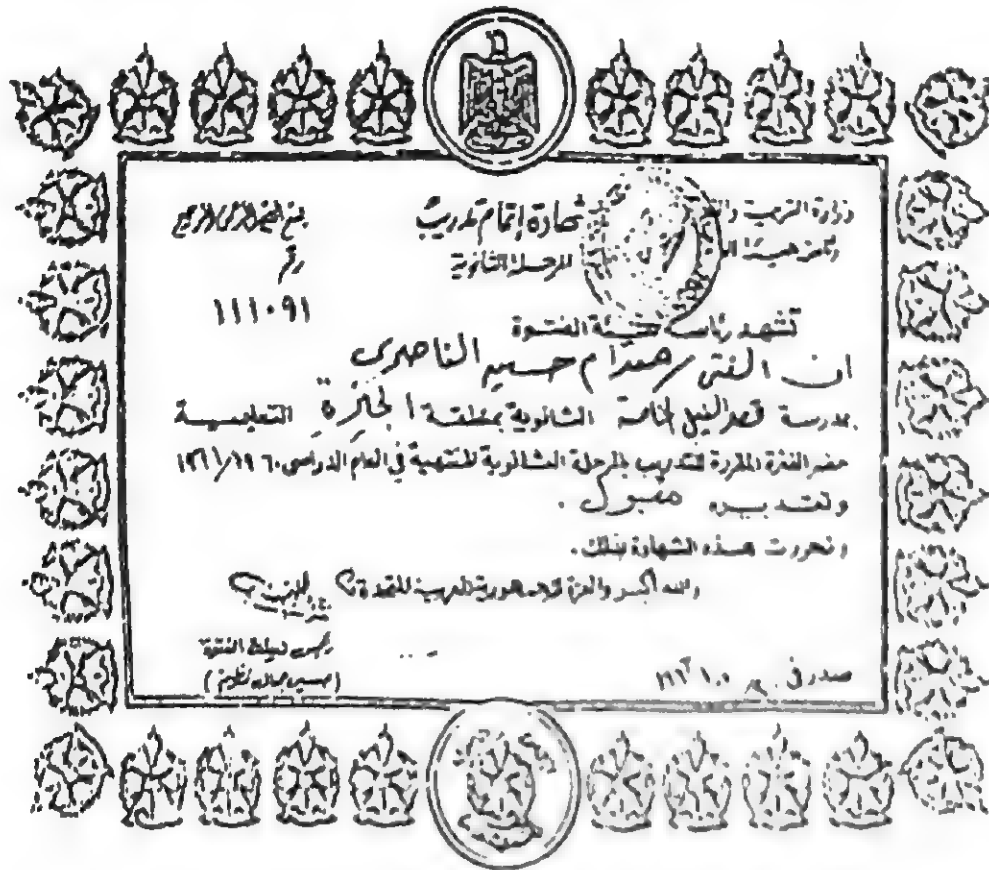 وزارة التربية
شهادة إتمام تدريب
للمرحلة الثانوية
رقم
١١١٠٩١
تشهد رئاسة هيئة الفتوة
ان الفتى / صدام حسين الناصري
بمدرسة قصر النيل الخاصة الثانوية بمنطقة الجيزة التعليمية
حضر الفترة المقررة للتدريب بالمرحلة الثانوية المنتهية في العام الدراسى ١٩٦٠/١٩٦١
وتقديره مقبول .
وتحررت هذه الشهادة بذلك .
والله أكبر والعزة للجمهورية العربية المتحدة
رئيس هيئة الفتوة
صدر في